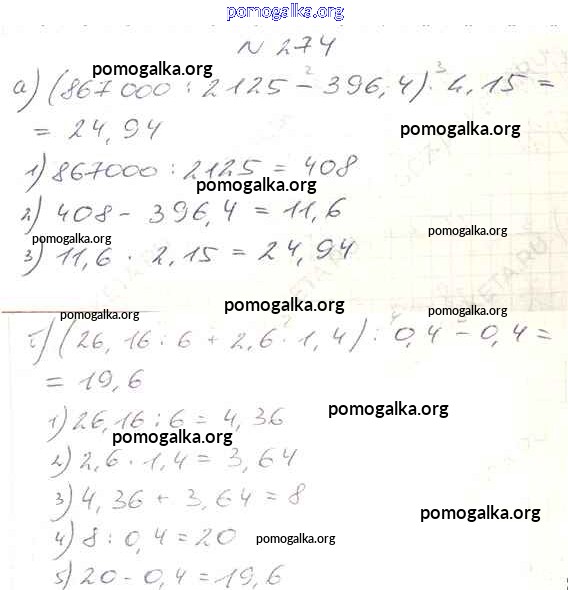 pomogalka.org
N 274
pomogalka.org
а) (867000 : 2125 - 396,4) · 2,15 =
2 3
= 24,94
pomogalka.org
1) 867000 : 2125 = 408
pomogalka.org
2) 408 - 396,4 = 11,6
pomogalka.org pomogalka.org
3) 11,6 · 2,15 = 24,94
pomogalka.org
pomogalka.org pomogalka.org
б) (26,16 : 6 + 2,6 · 1,4) : 0,4 - 0,4 =
= 19,6
pomogalka.org
1) 26,16 : 6 = 4,36
pomogalka.org
2) 2,6 · 1,4 = 3,64
3) 4,36 + 3,64 = 8
pomogalka.org
4) 8 : 0,4 = 20
pomogalka.org
5) 20 - 0,4 = 19,6